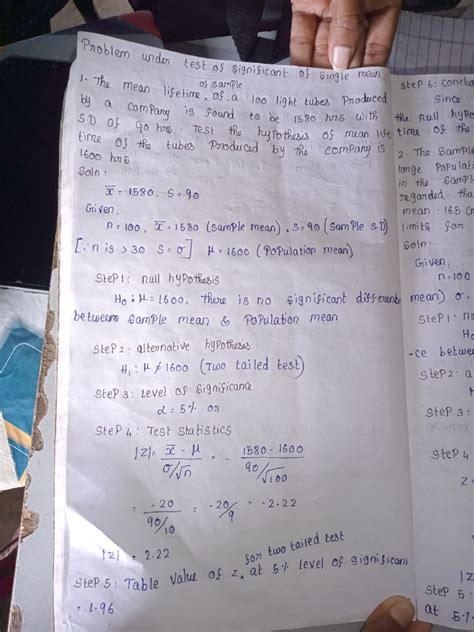 Problem under test of significant of single mean
of sample
1. The mean lifetime of a 100 light tubes produced
by a company is found to be 1580 hrs with
S.D of 90 hrs. Test the hypothesis of mean life
time of the tubes produced by the company is
1600 hrs.
Soln:
x̄ = 1580, S = 90
Given,
n = 100, x̄ = 1580 (sample mean), S = 90 (sample S.D)
[∵ n is > 30 S = σ] μ = 1600 (population mean)
Step 1: null hypothesis
H₀: μ = 1600, there is no significant difference
between sample mean & population mean
Step 2: alternative hypothesis:
H₁: μ ≠ 1600 (Two tailed test)
Step 3: Level of significance
α = 5% or
Step 4: Test statistics
|Z| = x̄ - μ / σ/√n = 1580 - 1600 / 90/√100
= -20 / 90/10 = -20/9 = -2.22
|Z| = 2.22
for two tailed test
Step 5: Table value of z, at 5% level of significan
= 1.96
Step 6: Conclu
Since
the null hypo
time of the
2. The sample
large populati
in the sampl
regarded tha
mean 165 c
limits for
Soln:
Given,
n = 100
mean) σ
Step 1: n
H₀
-ce betwee
Step 2: a
Step 3:
Step 4
Z =
|Z
Step 5:
at 5%